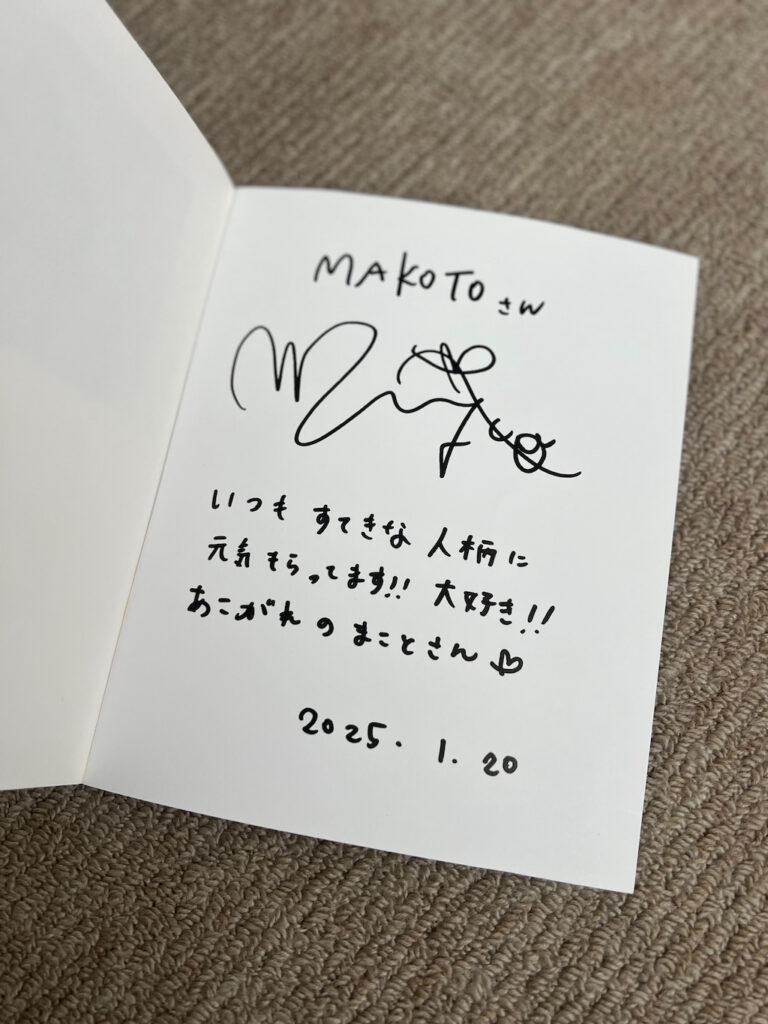 MAKOTOさん
いつも すてきな 人柄に
元気もらってます!! 大好き!!
あこがれの まことさん♡
2025. 1. 20